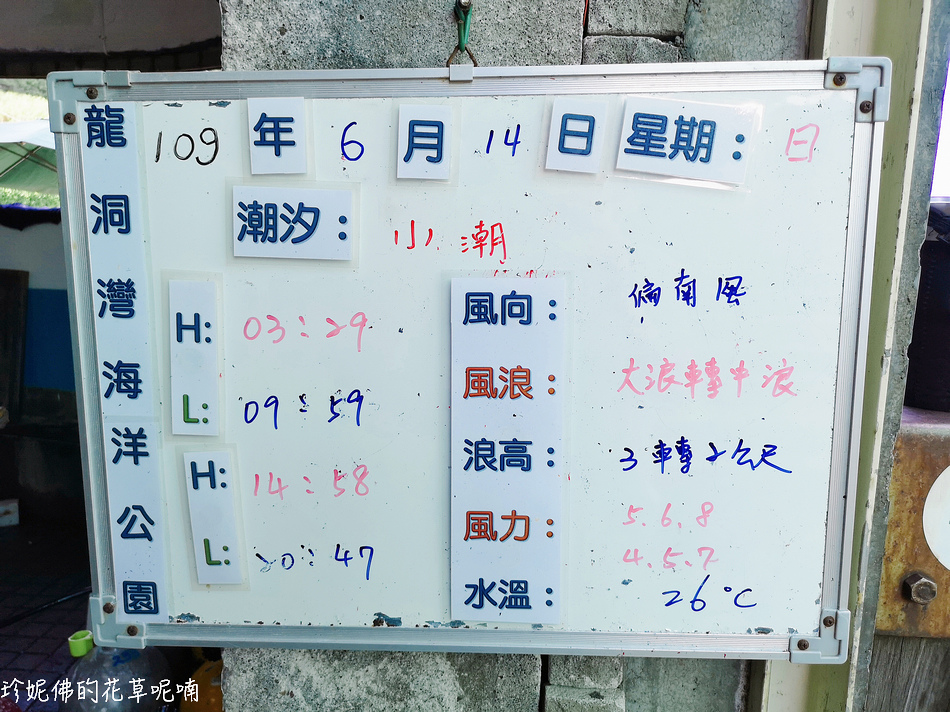 龍洞灣海洋公園
109 年 6 月 14 日 星期：日
潮汐：小潮
H: 03:29
L: 09:59
H: 14:58
L: 20:47
風向：偏南風
風浪：大浪轉中浪
浪高：3轉2公尺
風力：5.6.8
4.5.7
水溫：26°C
珍妮佛的花草呢喃